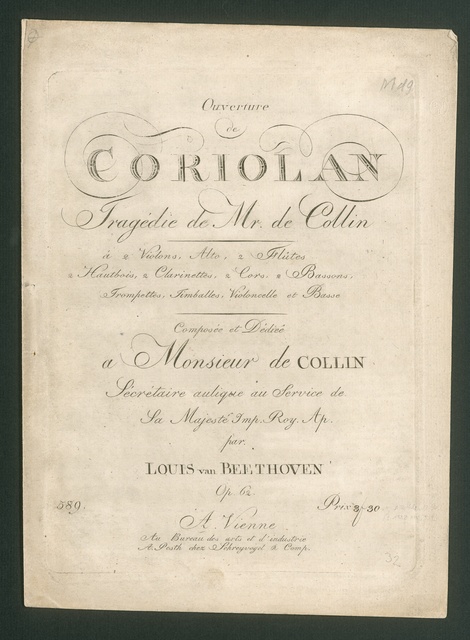 Ouverture
de
CORIOLAN
Tragédie de Mr. de Collin
à 2 Violons, Alto, 2 Flûtes
2 Hautbois, 2 Clarinettes, 2 Cors, 2 Bassons,
Trompettes, Timballes, Violoncelle et Basse
Composée et Dédiée
a Monsieur de COLLIN
Sécrétaire aulique au Service de
Sa Majesté Imp. Roy. Ap.
par
LOUIS van BEETHOVEN
Op. 62.
589. Prix 3f 30
A Vienne
Au Bureau des arts et d'industrie
A. Pesth chez Schreyvogel & Comp.